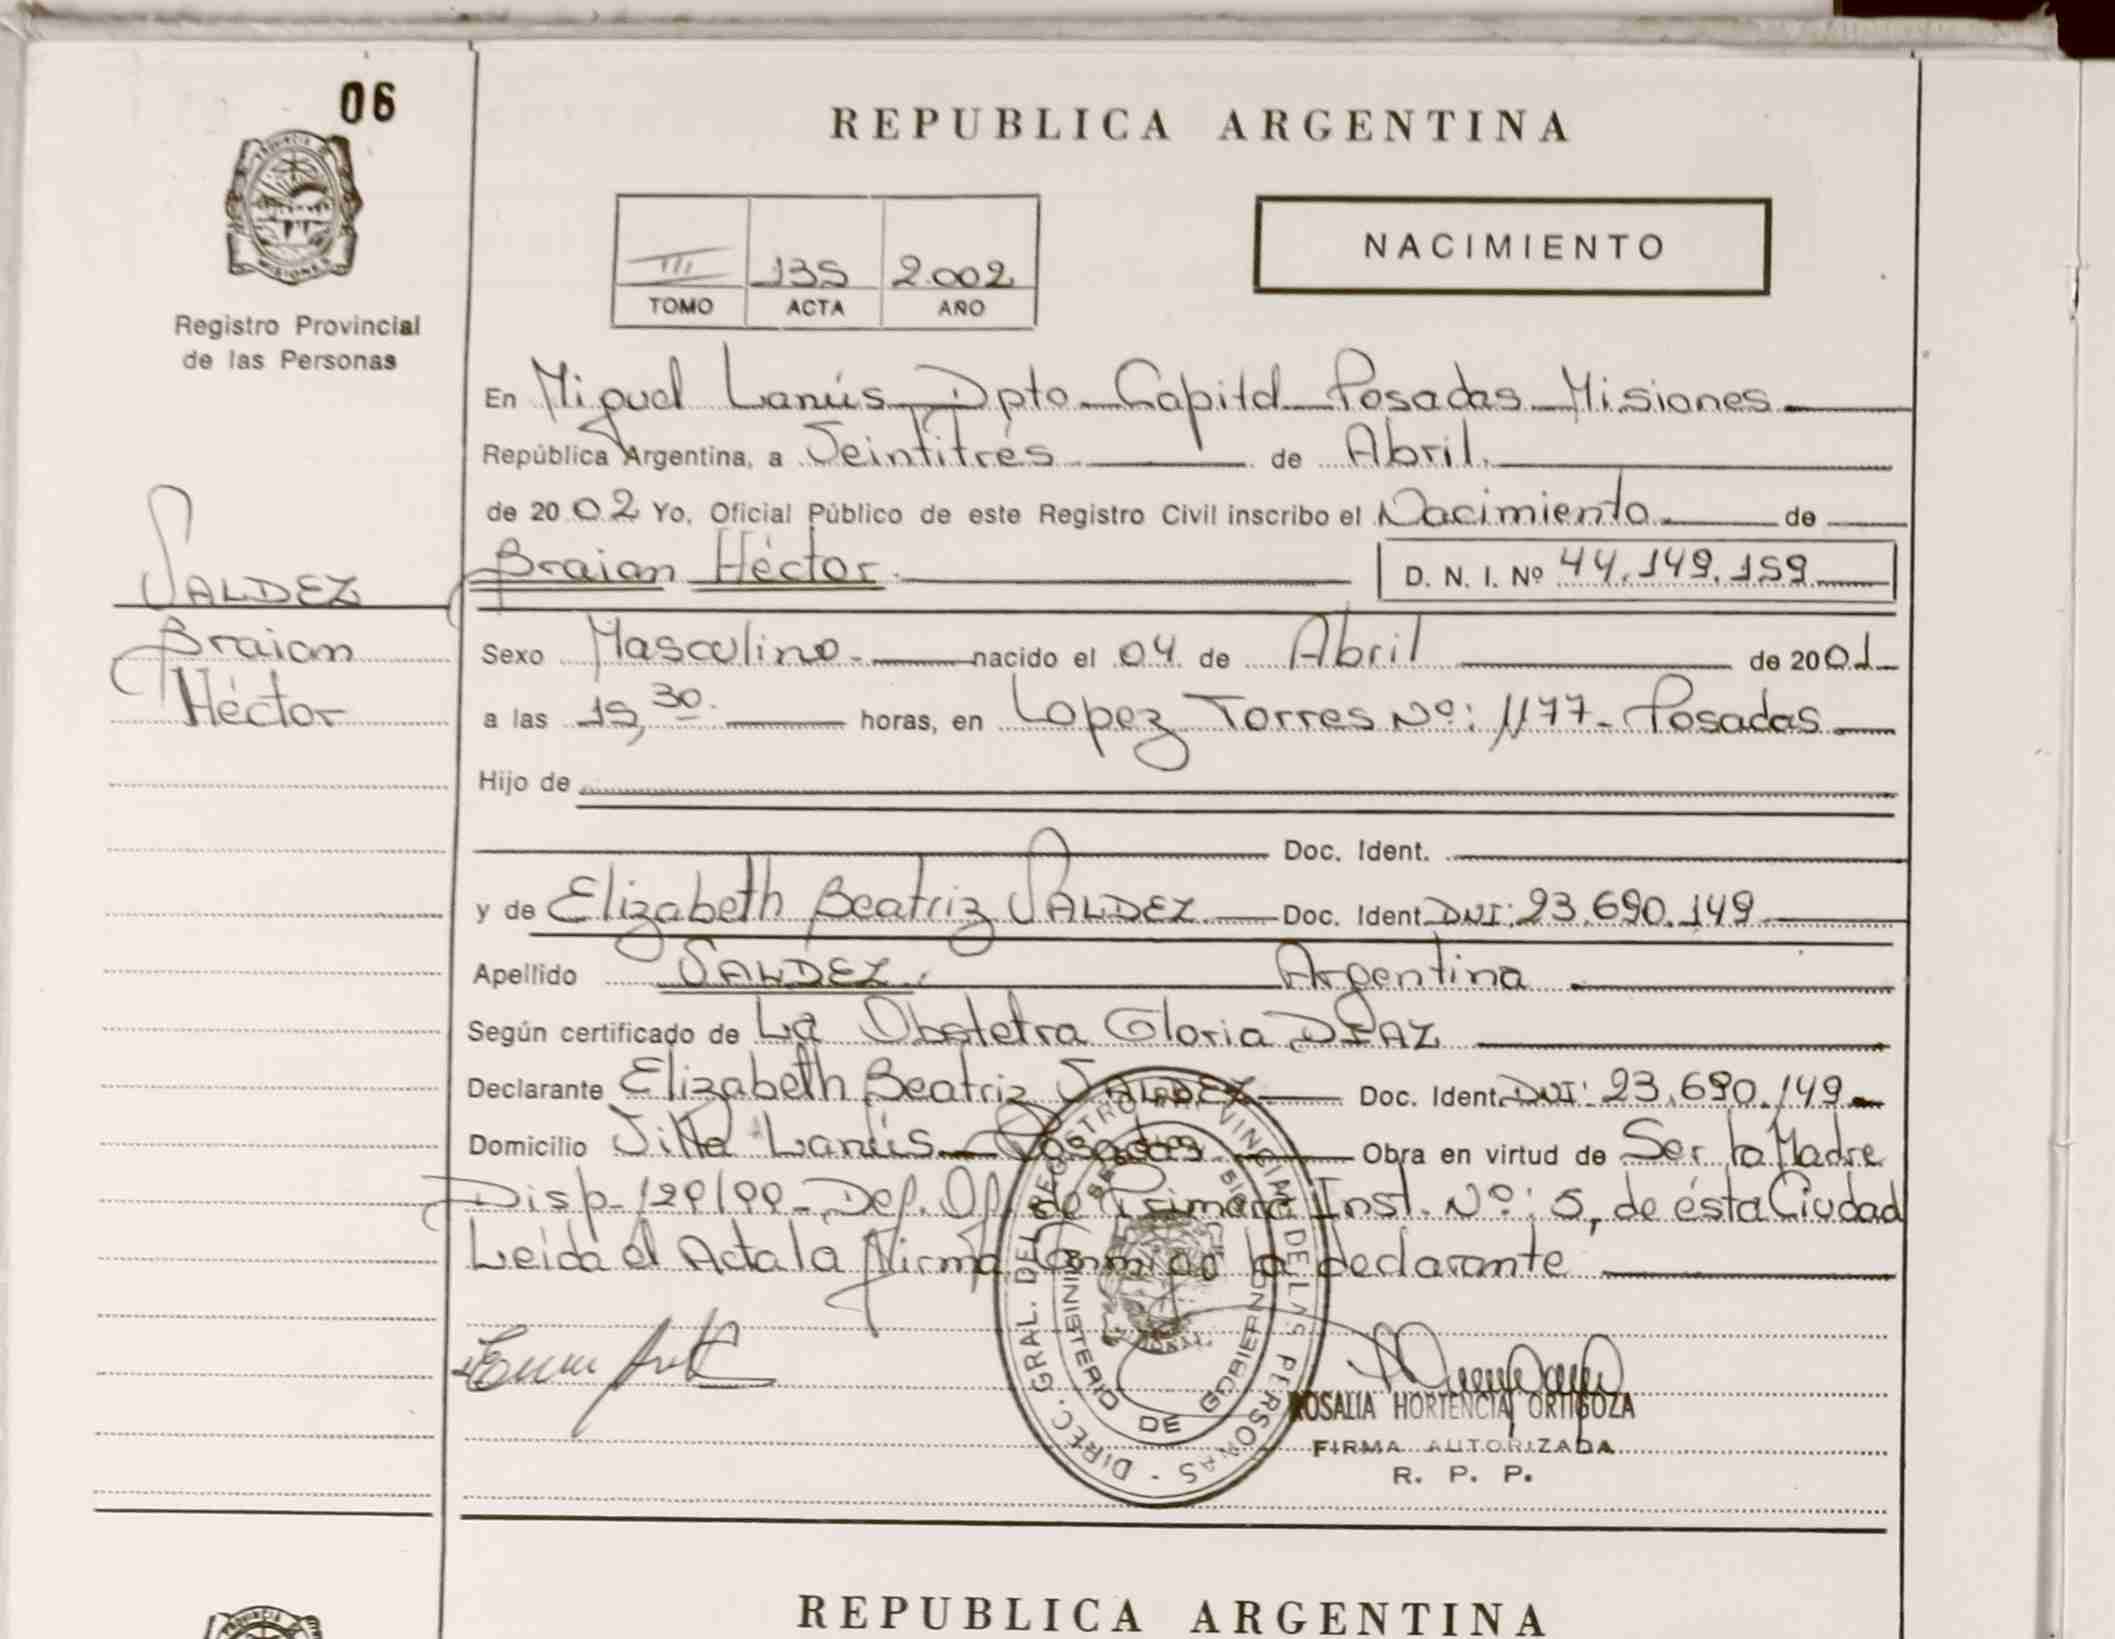 06
REPUBLICA ARGENTINA
NACIMIENTO
III 135 2.002
TOMO ACTA AÑO
Registro Provincial
de las Personas
En Miguel Lanús Dpto Capital Posadas Misiones
República Argentina, a Veintitrés de Abril.
de 2002 Yo, Oficial Público de este Registro Civil inscribo el Nacimiento de
Braian Héctor. D. N. I. Nº 44.149.159
VALDEZ
Braian
Héctor
Sexo Masculino. nacido el 04 de Abril de 2001
a las 19,30. horas, en Lopez Torres Nº: 1177- Posadas
Hijo de
Doc. Ident.
y de Elizabeth Beatriz VALDEZ Doc. Ident. DNI: 23.690.149
Apellido VALDEZ. Argentina
Según certificado de La Obstetra Gloria DIAZ
Declarante Elizabeth Beatriz VALDEZ Doc. Ident. DNI: 23.690.149
Domicilio Villa Lanús Posadas Obra en virtud de Ser la Madre
Disp. 120/00 Def. Of. de Primera Inst. Nº: 5, de ésta Ciudad
Leída el Acta la Firma Conmigo la declarante
DIREC. GRAL. DEL REGISTRO PROVINCIAL DE LAS PERSONAS
MINISTERIO DE GOBIERNO
ROSALIA HORTENCIA ORTIGOZA
FIRMA AUTORIZADA
R. P. P.
REPUBLICA ARGENTINA